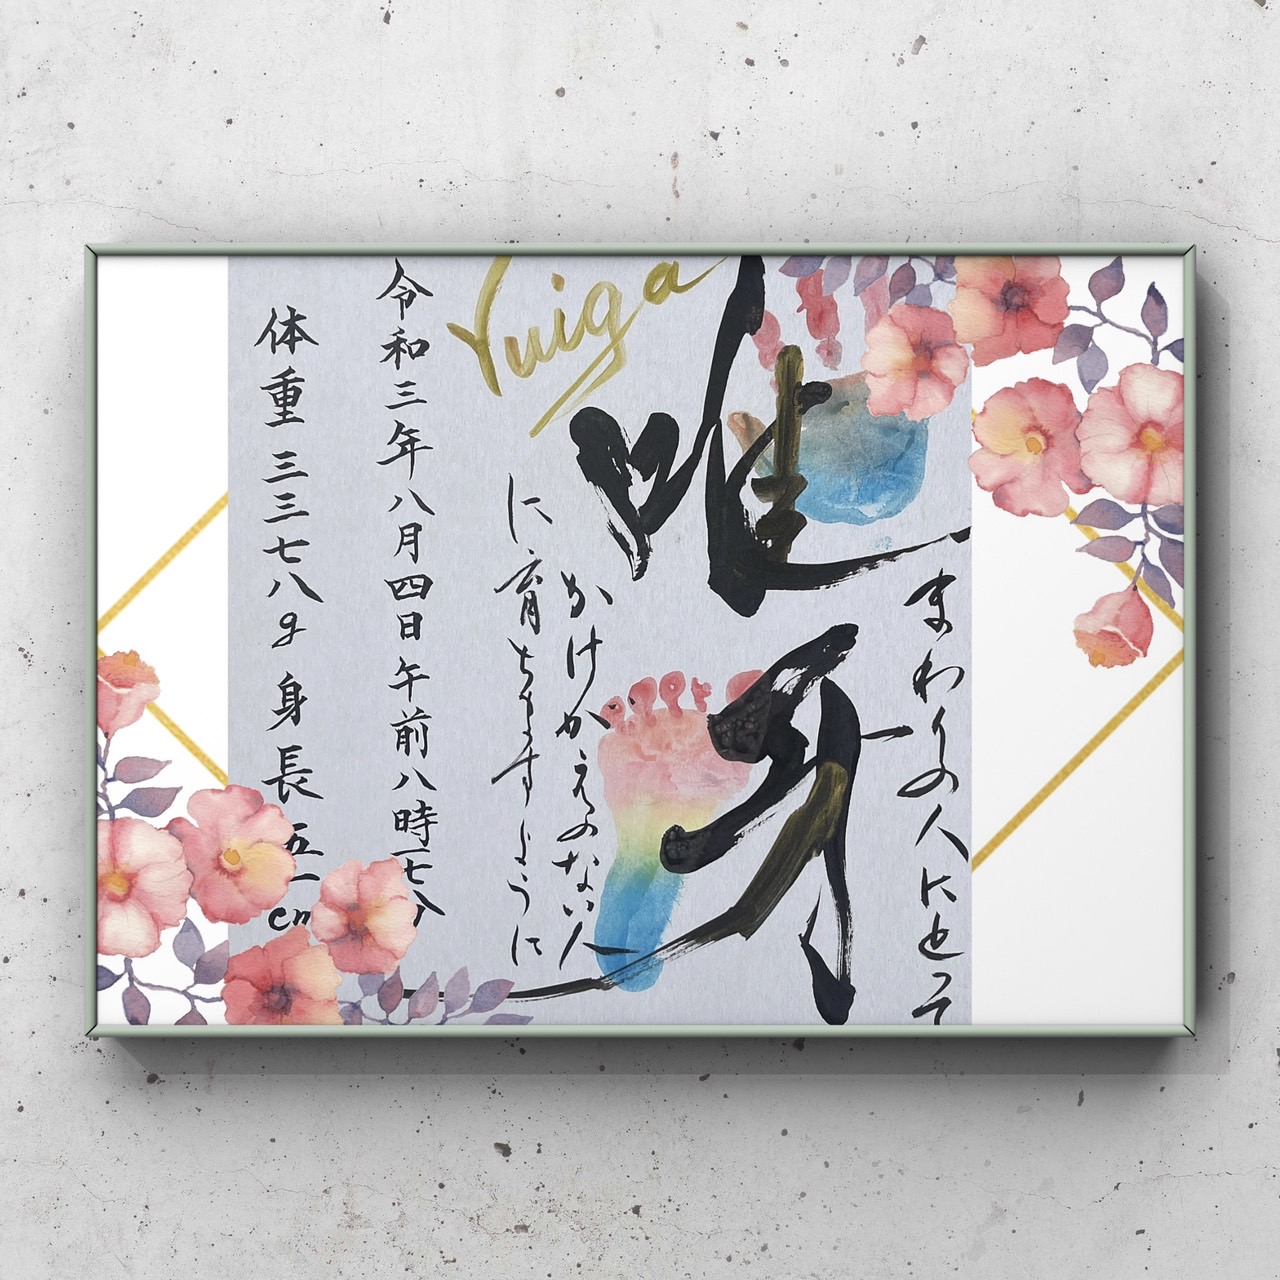 まわりの人にとって
唯牙
かけがえのない人
に育ちますように
Yuiga
令和三年八月四日午前八時一七分
体重三三七八g身長五一cm